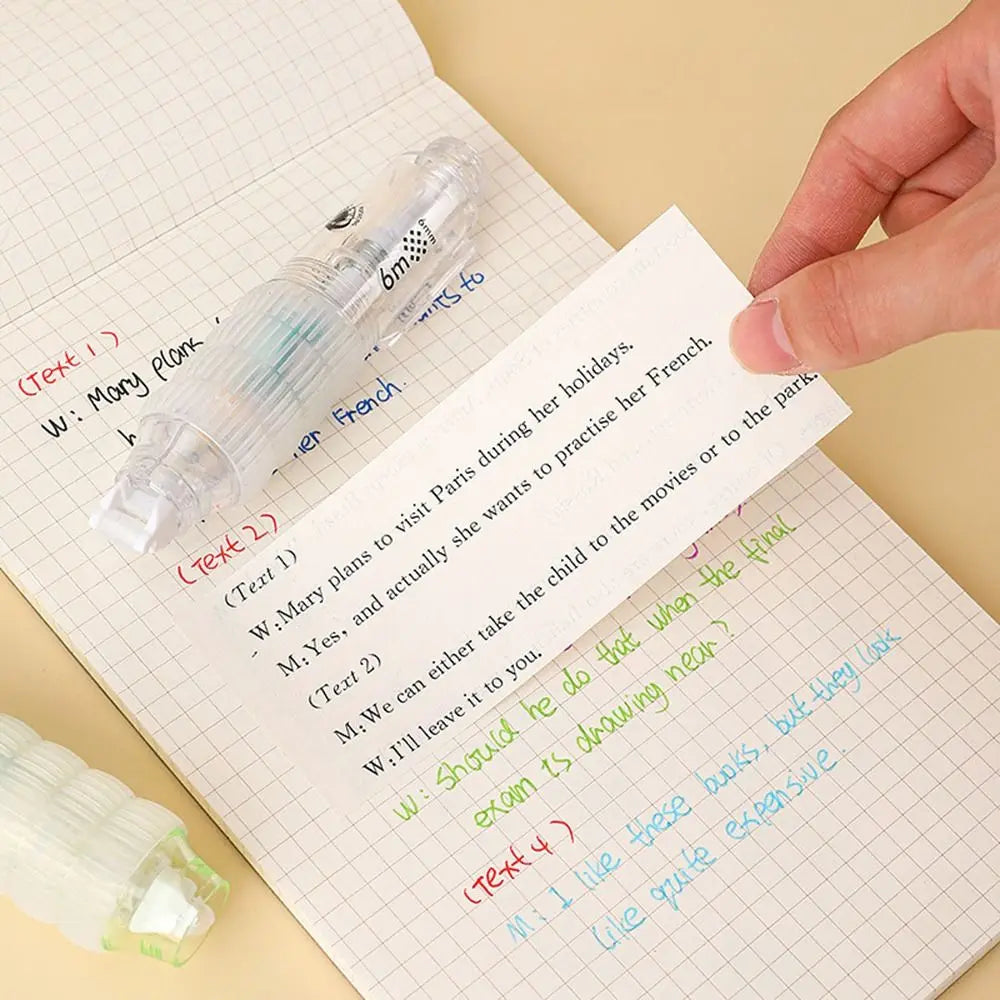 (Text 1)
W: Mary plans
her French.
6m
6mm
(Text 2)
(Text 1)
W:Mary plans to visit Paris during her holidays.
M:Yes, and actually she wants to practise her French.
(Text 2)
M:We can either take the child to the movies or to the park.
W:I'll leave it to you.
W: Should he do that when the final
exam is drawing near?
(Text 4)
M: I like these books, but they look
like quite expensive.